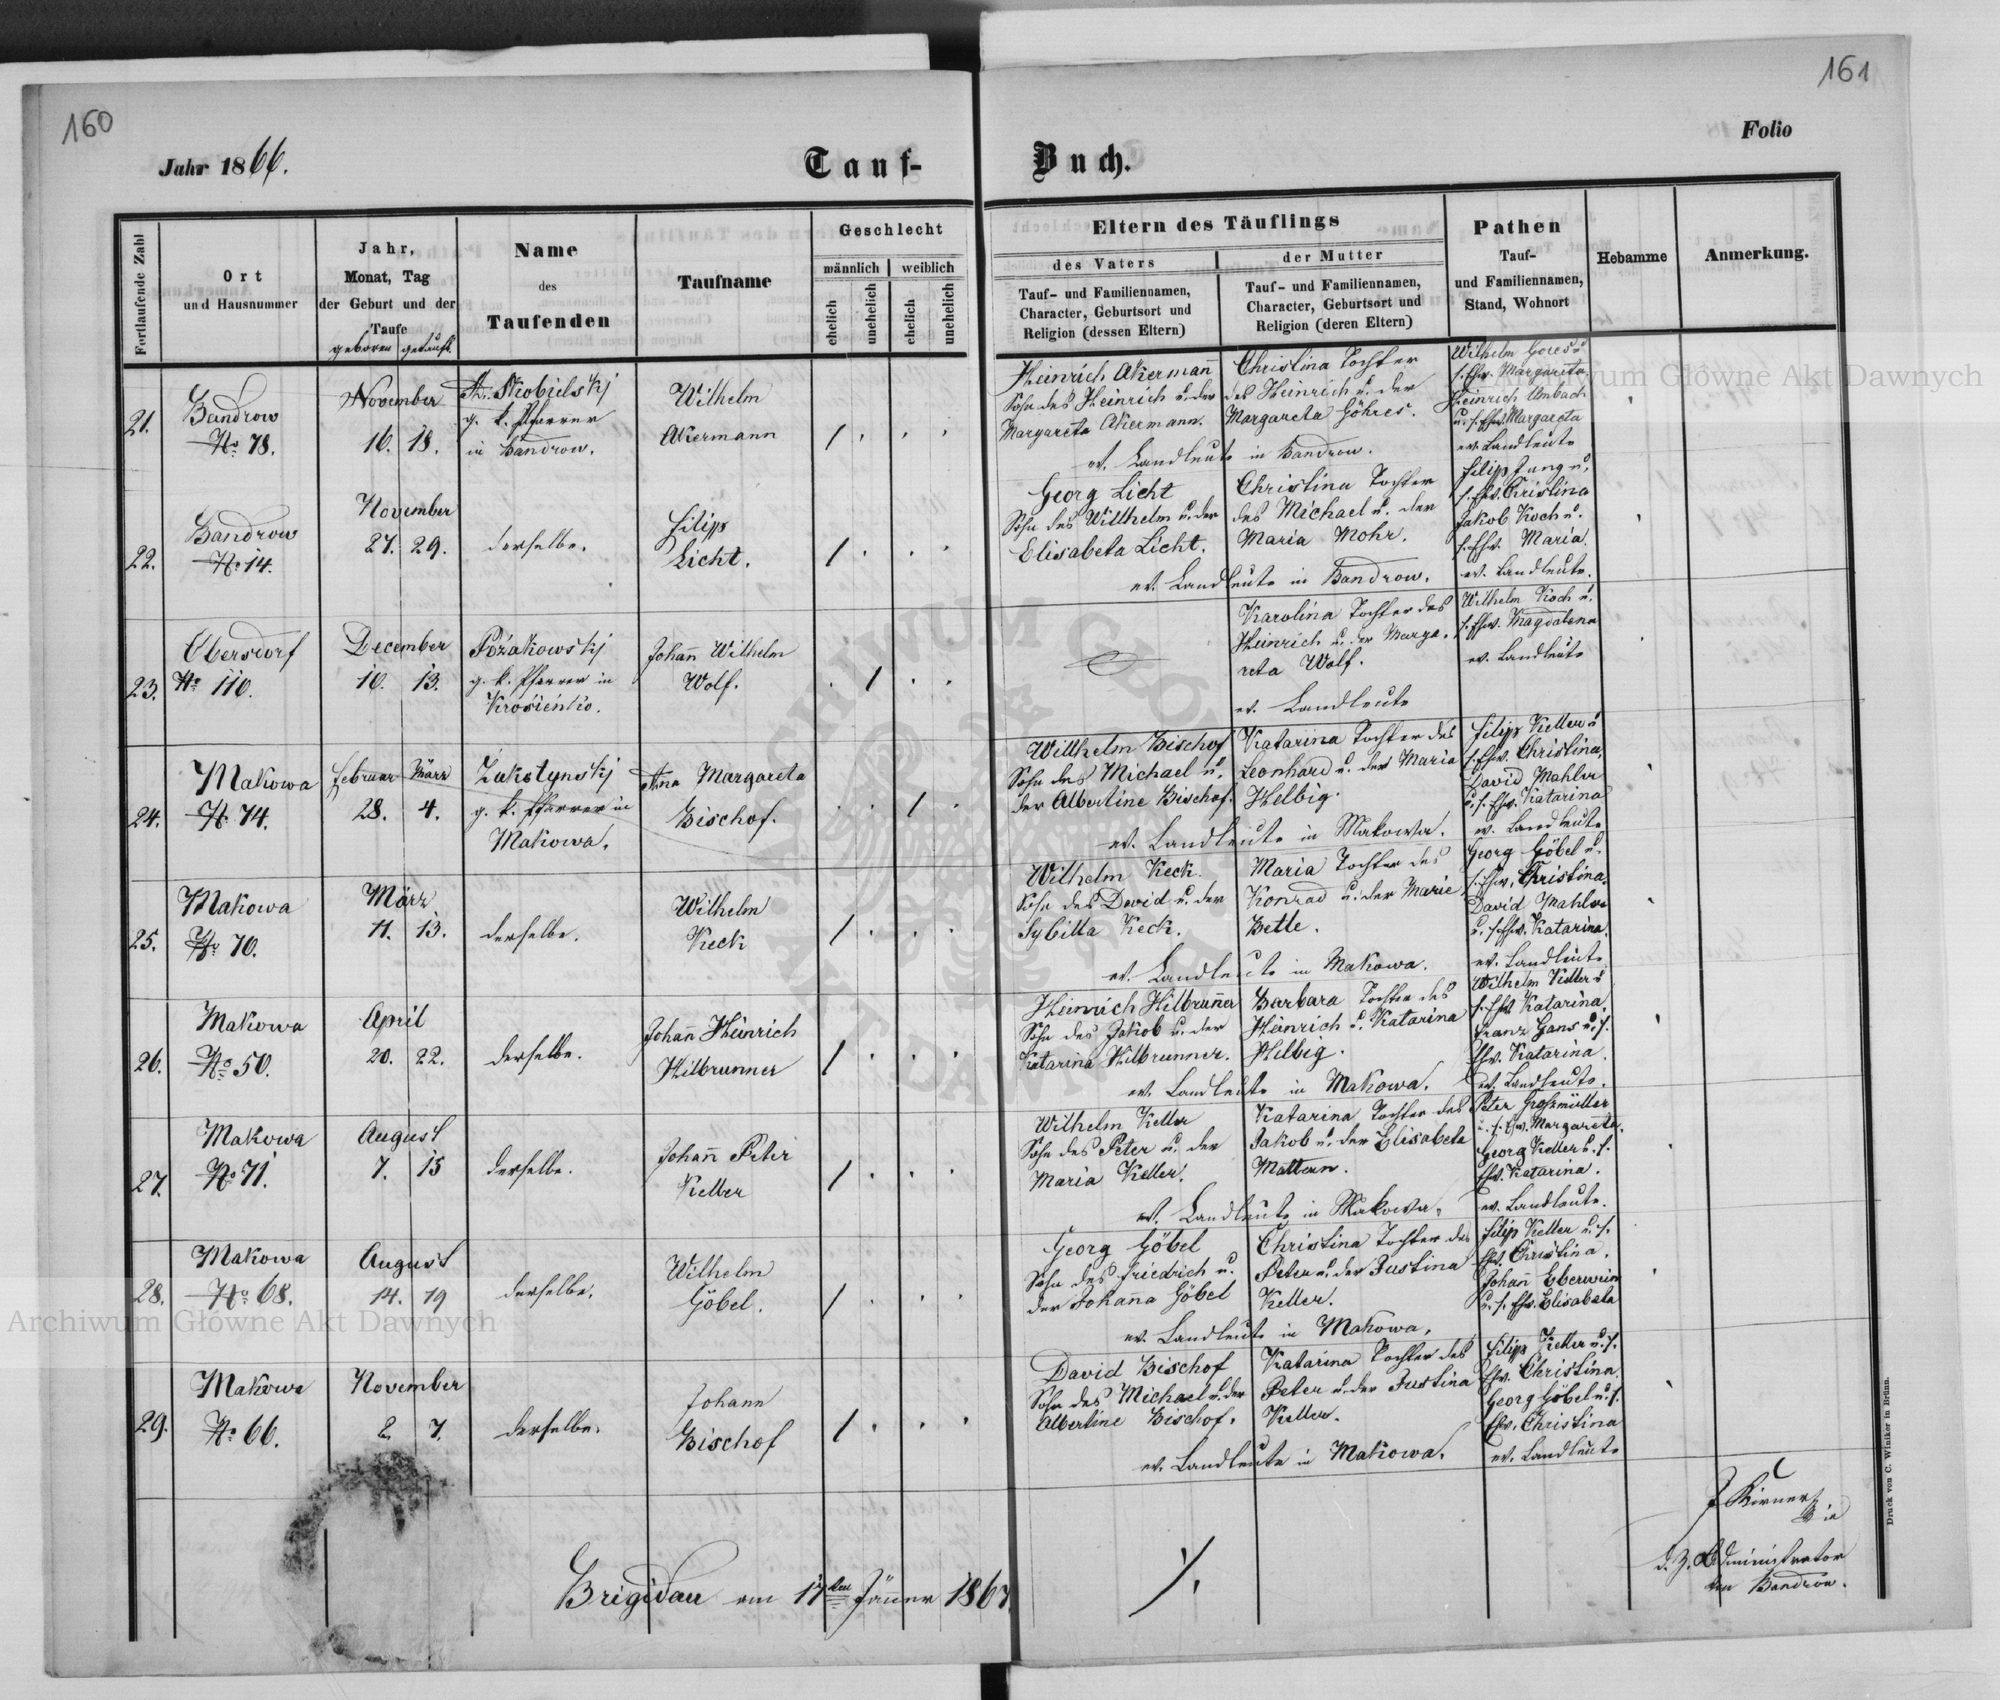 160
161
Jahr 1866.
Tauf-
Buch.
Folio
Fortlaufende Zahl
Ort
und Hausnummer
Jahr,
Monat, Tag
der Geburt und der
Taufe
geboren getauft
Name
des
Taufenden
Taufname
Geschlecht
männlich
weiblich
ehelich
unehelich
ehelich
unehelich
Eltern des Täuflings
des Vaters
Tauf- und Familiennamen,
Character, Geburtsort und
Religion (dessen Eltern)
der Mutter
Tauf- und Familiennamen,
Character, Geburtsort und
Religion (deren Eltern)
Pathen
Tauf-
und Familiennamen,
Stand, Wohnort
Hebamme
Anmerkung.
21.
Bandrow
No. 78.
November
16. 18.
Skobielskj
g. k. Pfarrer
in Bandrow.
Wilhelm
Akermann
Heinrich Akermann
Sohn des Heinrich u. der
Margareta Akermann.
Christina Tochter
des Heinrich u. der
Margareta Göhres.
ev. Landleute in Bandrow.
Wilhelm Gores u
s. Ehw. Margareta
Heinrich Umbach
u. s. Ehw. Margareta
ev. Landleute
22.
Bandrow
No. 14.
November
27. 29.
derselbe.
Filipp
Licht.
Georg Licht
Sohn des Willhelm u. der
Elisabeta Licht.
Christina Tochter
des Michael u. der
Maria Mohr.
ev. Landleute in Bandrow.
Filipp Jung u.
s. Ehw. Christina
Jakob Koch u.
s. Ehw. Maria.
ev. Landleute.
23.
Obersdorf
No 110.
December
10. 13.
Pożakowskj
g. k. Pfarrer in
Krościenko.
Johann Wilhelm
Wolf.
Karolina Tochter des
Heinrich u. der Marga-
reta Wolf.
ev. Landleute
Wilhelm Koch u.
s. Ehw. Magdalena
ev. Landleute
24.
Makowa
No 74.
Februar März
28. 4.
g. k. Pfarrer in
Makowa.
Anna Margareta
Bischof.
Willhelm Bischof
Sohn des Michael u.
der Albertine Bischof.
Katarina Tochter des
Leonhard u. der Maria
Helbig.
ev. Landleute in Makowa.
Filipp Keller u
s. Ehw. Christina,
David Mahler
u. s. Ehw. Katarina
ev. Landleute
25.
Makowa
No 70.
März
11. 13.
derselbe.
Wilhelm
Keck
Wilhelm Keck.
Sohn des David u. der
Sybilla Keck.
Maria Tochter des
Konrad u. der Marie
Bette.
ev. Landleute in Makowa.
Georg Göbel u.
s. Ehw. Christina.
David Mahler
u. s. Ehw. Katarina.
ev. Landleute
26.
Makowa
No 50.
April
20. 22.
derselbe.
Johann Heinrich
Hilbrunner
Heinrich Hilbrunner
Sohn des Jakob u. der
Katarina Hilbrunner.
Barbara Tochter des
Heinrich u. Katarina
Helbig.
ev. Landleute in Makowa.
Wilhelm Keller u
s. Ehw Katarina,
Franz Gans u. s.
Ehw. Katarina.
ev. Landleute.
27.
Makowa
No 71.
August
7. 15
derselbe.
Johann Peter
Keller
Wilhelm Keller
Sohn des Peter u. der
Maria Keller.
Katarina Tochter des
Jakob u. der Elisabeta
Mattern.
ev. Landleute in Makowa.
Peter Großmüller
u. s. Ehw. Margareta.
Georg Keller u. s.
Ehw. Katarina.
ev. Landleute.
28.
Makowa
No 68.
August
14. 19
derselbe.
Wilhelm
Göbel.
Georg Göbel
Sohn des Friedrich u.
der Johanna Göbel
Christina Tochter des
Peter u. der Justina
Keller.
ev. Landleute in Makowa.
Filip Keller u. s.
Ehw. Christina.
Johann Eberwein
u. s. Ehw. Elisabeta
29.
Makowa
No 66.
November
2. 7.
derselbe.
Johann
Bischof
David Bischof
Sohn des Michael u. der
Albertine Bischof.
Katarina Tochter des
Peter u. der Justina
Keller.
ev. Landleute in Makowa.
Filipp Keller u. s.
Ehw. Christina.
Georg Göbel u. s.
Ehw. Christina
ev. Landleute
Brigidau am 17ten Jänner 1867.
d. Z. Administrator
von Bandrow.
Druck von C. Winiker in Brünn.
Archiwum Główne Akt Dawnych
Archiwum Główne Akt Dawnych
ARCHIWUM GŁÓWNE AKT DAWNYCH